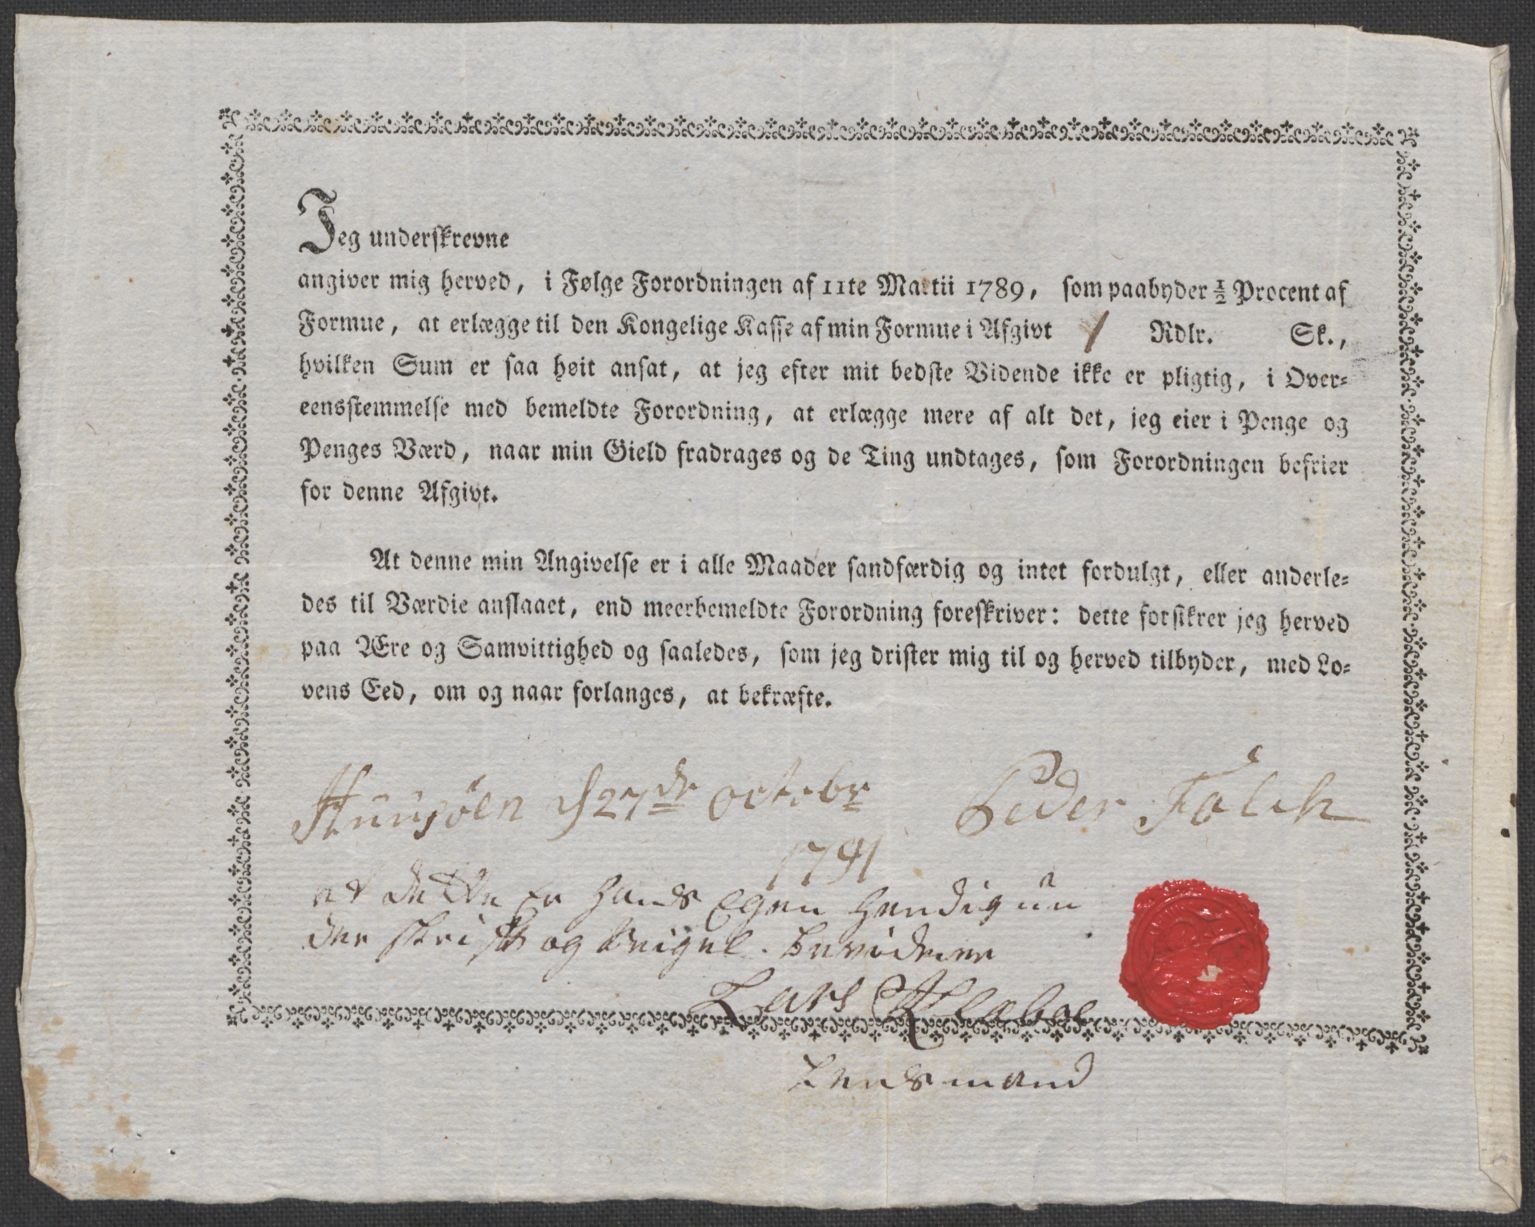 Jeg underskrevne
angiver mig herved, i Følge Forordningen af 11te Martii 1789, som paabyder ½ Procent af
Formue, at erlægge til den Kongelige Kasse af min Formue i Afgivt 1 Rdlr. Sk.,
hvilken Sum er saa høit ansat, at jeg efter mit bedste Vidende ikke er pligtig, i Over-
eensstemmelse med bemeldte Forordning, at erlægge mere af alt det, jeg eier i Penge og
Penges Værd, naar min Gield fradrages og de Ting undtages, som Forordningen befrier
for denne Afgivt.
At denne min Angivelse er i alle Maader sandfærdig og intet fordulgt, eller anderle-
des til Værdie anslaaet, end meerbemeldte Forordning foreskriver: dette forsikrer jeg herved
paa Ære og Samvittighed og saaledes, som jeg drister mig til og herved tilbyder, med Lo-
vens Eed, om og naar forlanges, at bekræfte.
d 27de octobr Peder Falch
1791
at dette er hands Egen Hendig un
der skrift og Seigel. bevidner
Lars Klaboe
Lensmand